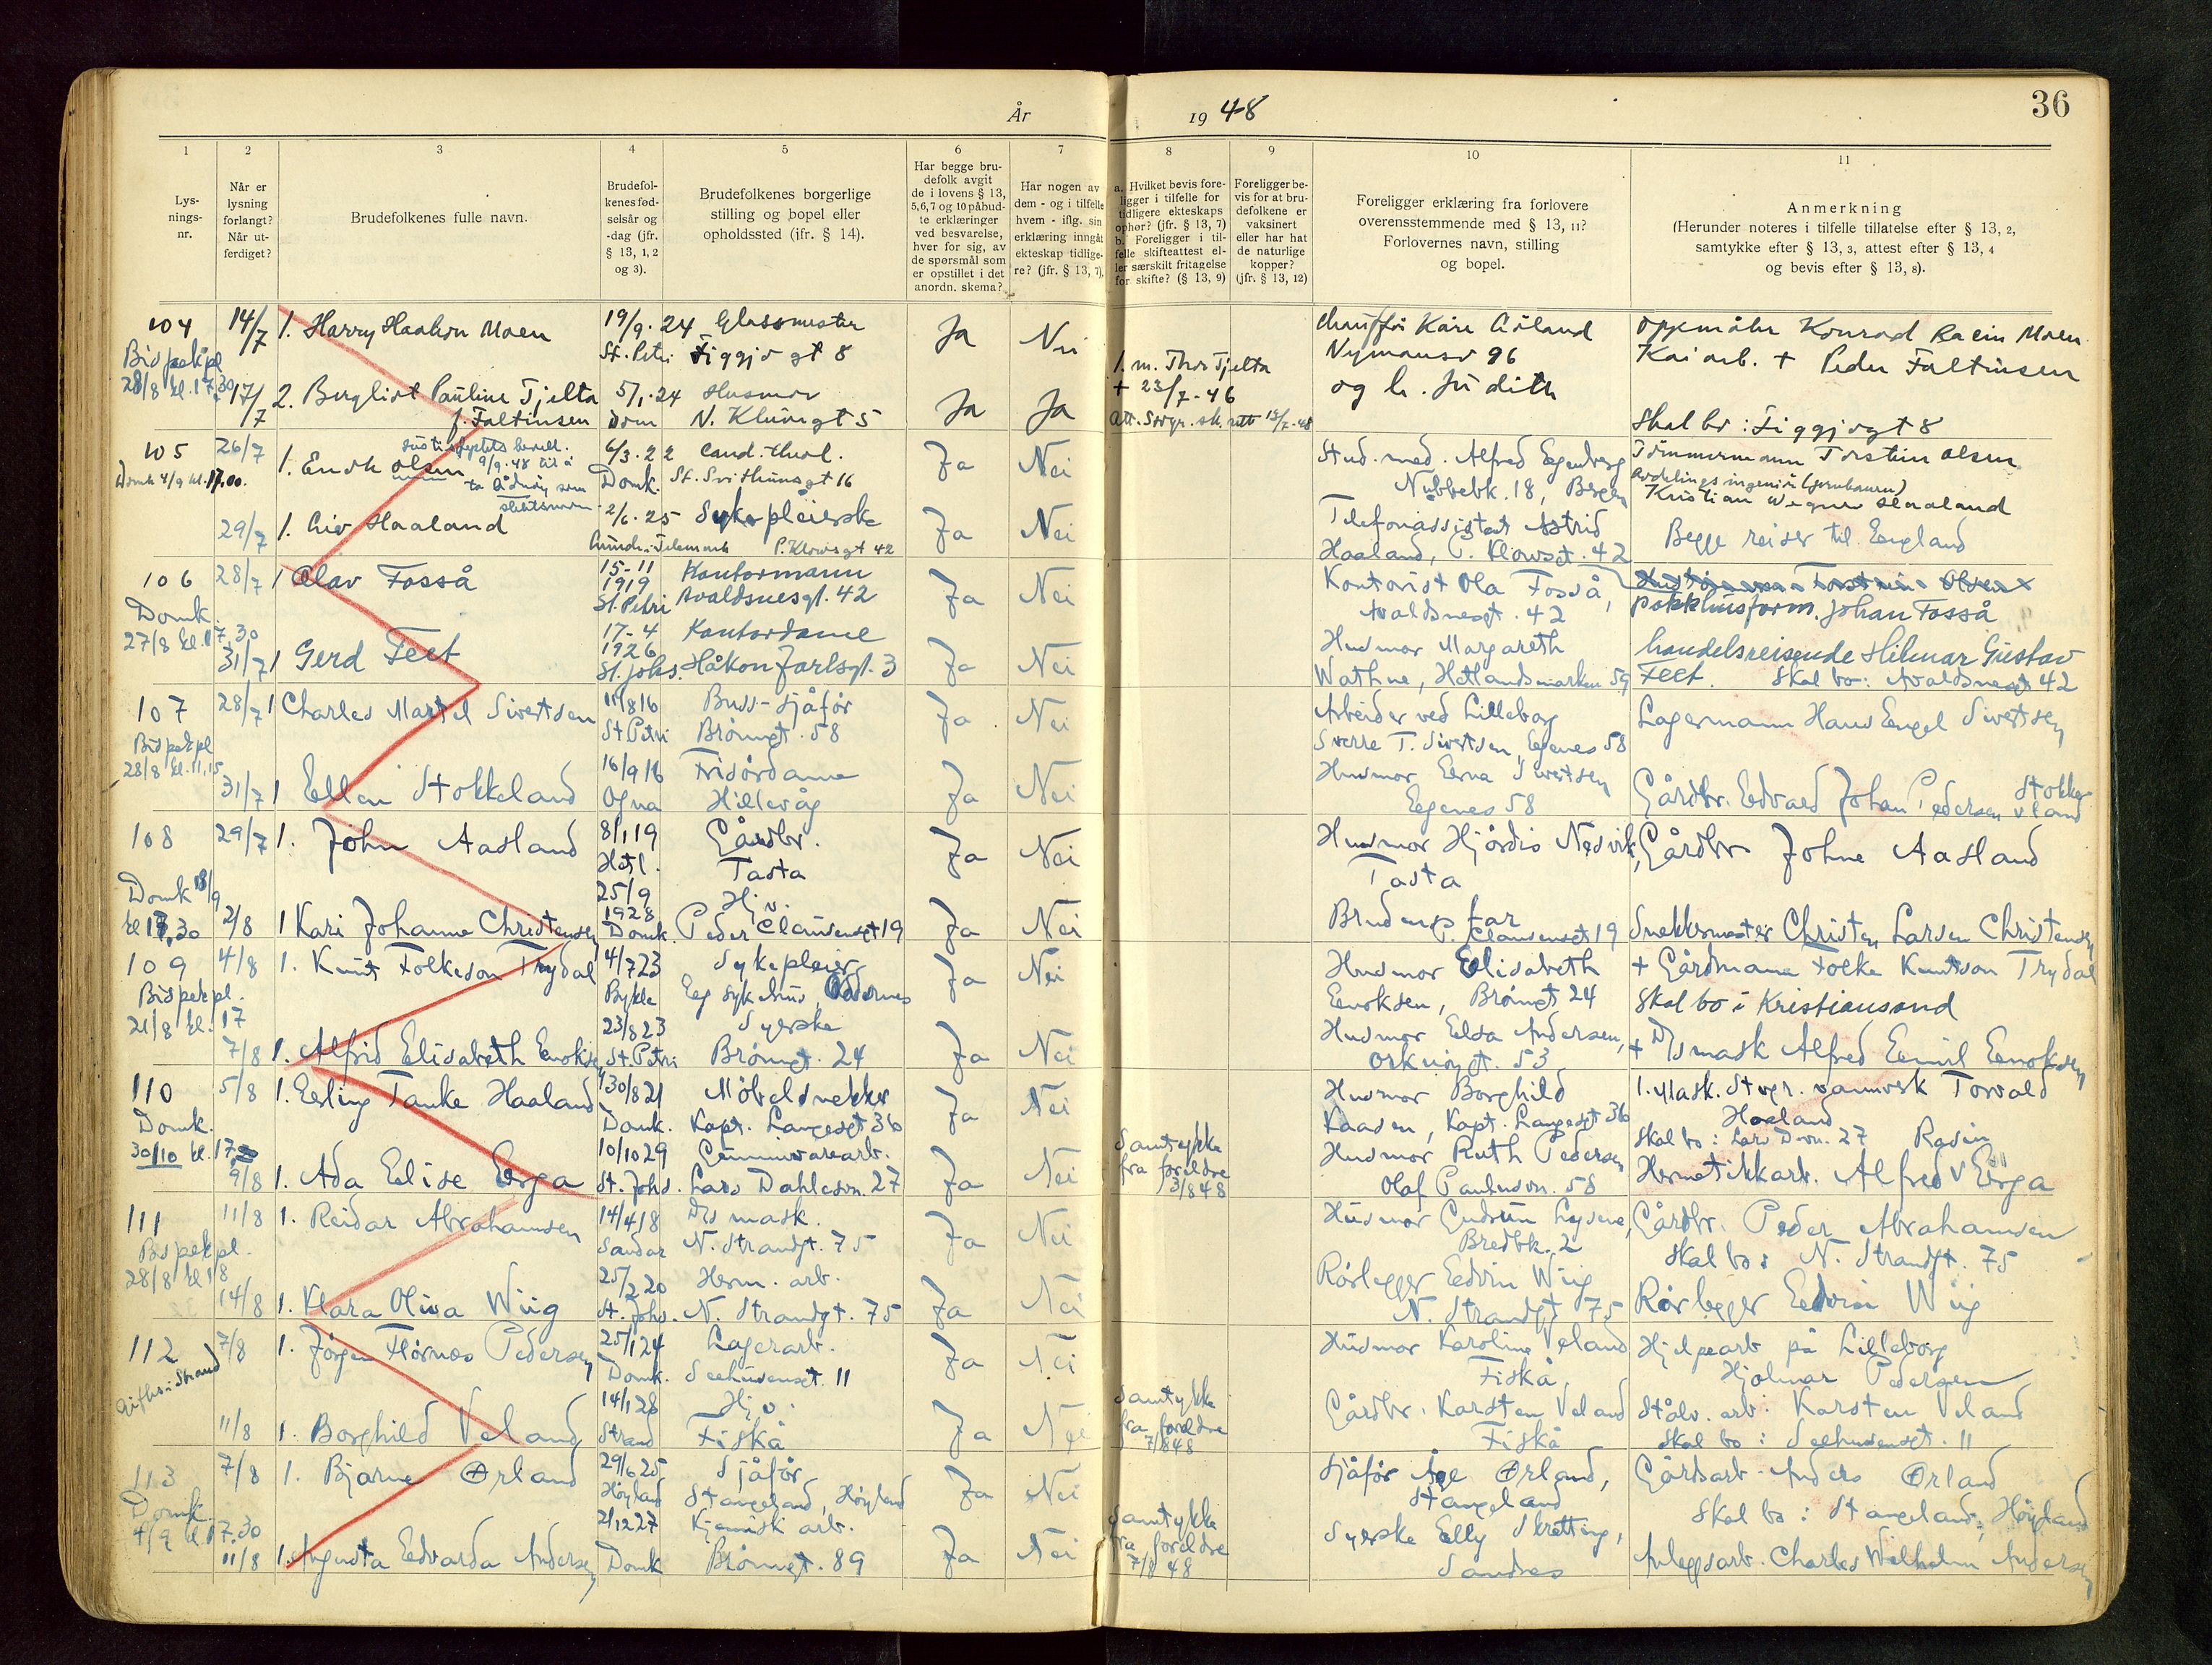 År 1948
36
1 2 3 4 5 6 7 8 9 10 11
Lys-
nings-
nr.
Når er
lysning
forlangt?
Når ut-
ferdiget?
Brudefolkenes fulle navn.
Brudefol-
kenes fød-
selsår og
-dag (jfr.
§ 13, 1, 2
og 3).
Brudefolkenes borgerlige
stilling og bopel eller
opholdssted (ifr. § 14).
Har begge bru-
defolk avgit
de i lovens § 13,
5, 6, 7 og 10 påbud-
te erklæringer
ved besvarelse,
hver for sig, av
de spørsmål som
er opstillet i det
anordn. skema?
Har nogen av
dem - og i tilfelle
hvem - iflg. sin
erklæring inngåt
ekteskap tidlige-
re? (jfr. § 13, 7).
a. Hvilket bevis fore-
ligger i tilfelle for
tidligere ekteskaps
ophør? (jfr. § 13, 7)
b. Foreligger i til-
felle skifteattest el-
ler særskilt fritagelse
for skifte? (§ 13, 9)
Foreligger be-
vis for at bru-
defolkene er
vaksinert
eller har hat
de naturlige
kopper?
(jfr. § 13, 12)
Foreligger erklæring fra forlovere
overensstemmende med § 13, 11?
Forlovernes navn, stilling
og bopel.
Anmerkning
(Herunder noteres i tilfelle tillatelse efter § 13, 2,
samtykke efter § 13, 3, attest efter § 13, 4
og bevis efter § 13, 8).
104
Bispekpl
28/8 kl. 17.30
14/7
1. Harry Haakon Moen
19/9. 24
St. Petri
Glassmester
Figgjogt 8
Ja
Nei
Kåre
Nymansv 96
og h. Judith
Konrad Moen
17/7
2. Bergliot Pauline Tjelta
f. Faltinsen
5/1. 24
Dom
Husmor
N. Klungt 5
Ja
Ja
1. m. Thor Tjelta
+ 23/7-46
+ Peder Faltinsen
Skal bo: Figgjogt 8
105
Domk 4/9 kl. 17.00.
26/7
1. Olsen
9/9. 48 til å
ta som
slektsnavn
6/3. 22
Domk.
cand. theol.
St. Svithunsgt 16
Ja
Nei
Stud. med. Alfred
Nubbebk. 18, Bergen
Tømmermann Torstein Olsen
29/7
1. Liv Haaland
2/6. 25
Sykepleierske
P. Klowsgt 42
Ja
Nei
Telefonassistent Astrid
Haaland, P. Klowsgt. 42
Avdelingsingeniør (jernbanen)
Kristian Haaland
Begge reiser til England
106
Domk.
27/8 kl. 17.30
28/7
1 Olav Fosså
15-11
1919
St. Petri
Kontormann
Avaldsnesgt. 42
Ja
Nei
Kontorist Ola Fosså,
Avaldsnesgt. 42
Pakkhusform. Johan Fosså
31/7
1 Gerd Feet
17-4
1926
St. Johs.
Kontordame
Håkon Jarlsgt. 3
Ja
Nei
Husmor Margareth
Wathne, Hetlandsmarken 59
handelsreisende Hilmar Gustav
Feet. Skal bo: Avaldsnesgt 42
107
Bispekpl
28/8 kl. 11,15
28/7
1 Charles Martel Sivertsen
11/8 16
St Petri
Buss-sjåfør
Brønngt. 58
Ja
Nei
Arbeider ved Lilleborg
Sverre T. Sivertsen, Egenes 58
Lagermann Hans Engel Sivertsen
31/7
1 Ellen Stokkeland
16/9 16
Ogna
Frisørdame
Hillevåg
Ja
Nei
Husmor Erna Sivertsen
Egenes 58
Gårdbr. Edvard Johan Pedersen Stokkeland
108
Domk 18/9
kl 17,30
29/7
1. John Aasland
8/1 19
Hetl.
Gårdbr.
Tasta
Ja
Nei
Husmor Hjørdis Nesvik,
Tasta
Gårdbr Johne Aasland
2/8
1 Kari Johanne Christensen
25/9
1928
Domk.
Hj. v.
Peder Clausensgt 19
Ja
Nei
Brudens far
P. Clausensgt 19
Snekkermester Christen Larsen Christensen
109
Bispekpl.
21/8 kl. 17
4/8
1. Knut Folkeson Trydal
4/7 23
Bykle
Sykepleier
Eg sykehus, Oddernes
Ja
Nei
Husmor Elisabeth
Enoksen, Brønngt 24
+ Gårdmann Folke Knutson Trydal
Skal bo i Kristiansand
7/8
1. Alfrid Elisabeth Enoksen
23/8 23
St. Petri
Syerske
Brønngt. 24
Ja
Nei
Husmor Elsa Andersen,
Orknøygt. 53
+ D/s mask Alfred Emil Enoksen
110
Domk.
30/10 kl. 17
5/8
1. Erling Tanke Haaland
30/8 21
Domk.
Møbelsnekker
Kapt. Langesgt 36
Ja
Nei
Husmor Borghild
Kaasen, Kapt. Langesgt 36
1. Mask. Stvgr. vannverk Torvald
Haaland
Skal bo: Lars D.svn. 27
9/8
1. Ada Elise Erga
10/10 29
St. Johs.
Gummivarearb.
Lars Dahlesvn. 27
Ja
Nei
Samtykke
fra foreldre
3/8 48
Husmor Ruth Pedersen
Olaf Paulusvn. 58
Hermetikkarb. Alfred Rasin Erga
111
Bispekpl.
28/8 kl 18
11/8
1. Reidar Abrahamsen
14/4 18
Sandar
D/s mask.
N. Strandgt. 75
Ja
Nei
Husmor Gudrun Lysene,
Bredbk. 2
Gårdbr. Peder Abrahamsen
Skal bo: N. Strandgt. 75
14/8
1. Klara Oliva Wiig
25/2 20
St. Johs.
Herm. arb.
N. Strandgt. 75
Ja
Nei
Rørlegger Edvin Wiig
N. Strandgt 75
Rørlegger Edvin Wiig
112
Giftes i Strand
7/8
1. Jørgen Flørnes Pedersen
25/1 24
Domk.
Lagerarb.
Seehusensgt. 11
Ja
Nei
Husmor Karoline Veland
Fiskå
Hjelpearb på Lilleborg
Hjalmar Pedersen
11/8
1. Borghild Veland
14/1 28
Strand
Hj. v.
Fiskå
Ja
Nei
Samtykke
fra foreldre
7/8 48
Gårdbr. Karsten Veland
Fiskå
Stålv. arb. Karsten Veland
Skal bo: Seehusensgt. 11
113
Domk.
4/9 kl 17.30
7/8
1. Bjarne Ørland
29/6 25
Høyland
Sjåfør
Stangeland, Høyland
Ja
Nei
Sjåfør Åge Ørland,
Stangeland
Gårdsarb. Anders Ørland
Skal bo: Stangeland, Høyland
11/8
1. Augusta Edvarda Andersen
2/12 27
Domk
Kjemisk arb.
Brønngt. 89
Ja
Nei
Samtykke
fra foreldre
7/8 48
Syerske Elly Skretting,
Sandnes
Anleggsarb. Charles Wilhelm Andersen